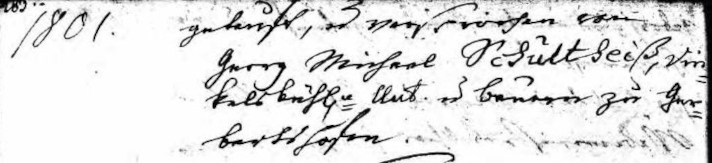 1801. getauft, u verssprochen von
Georg Michael Schültheiß, Din=
kelsbühl. Unt. u bauern zu Ger=
bertshofen.